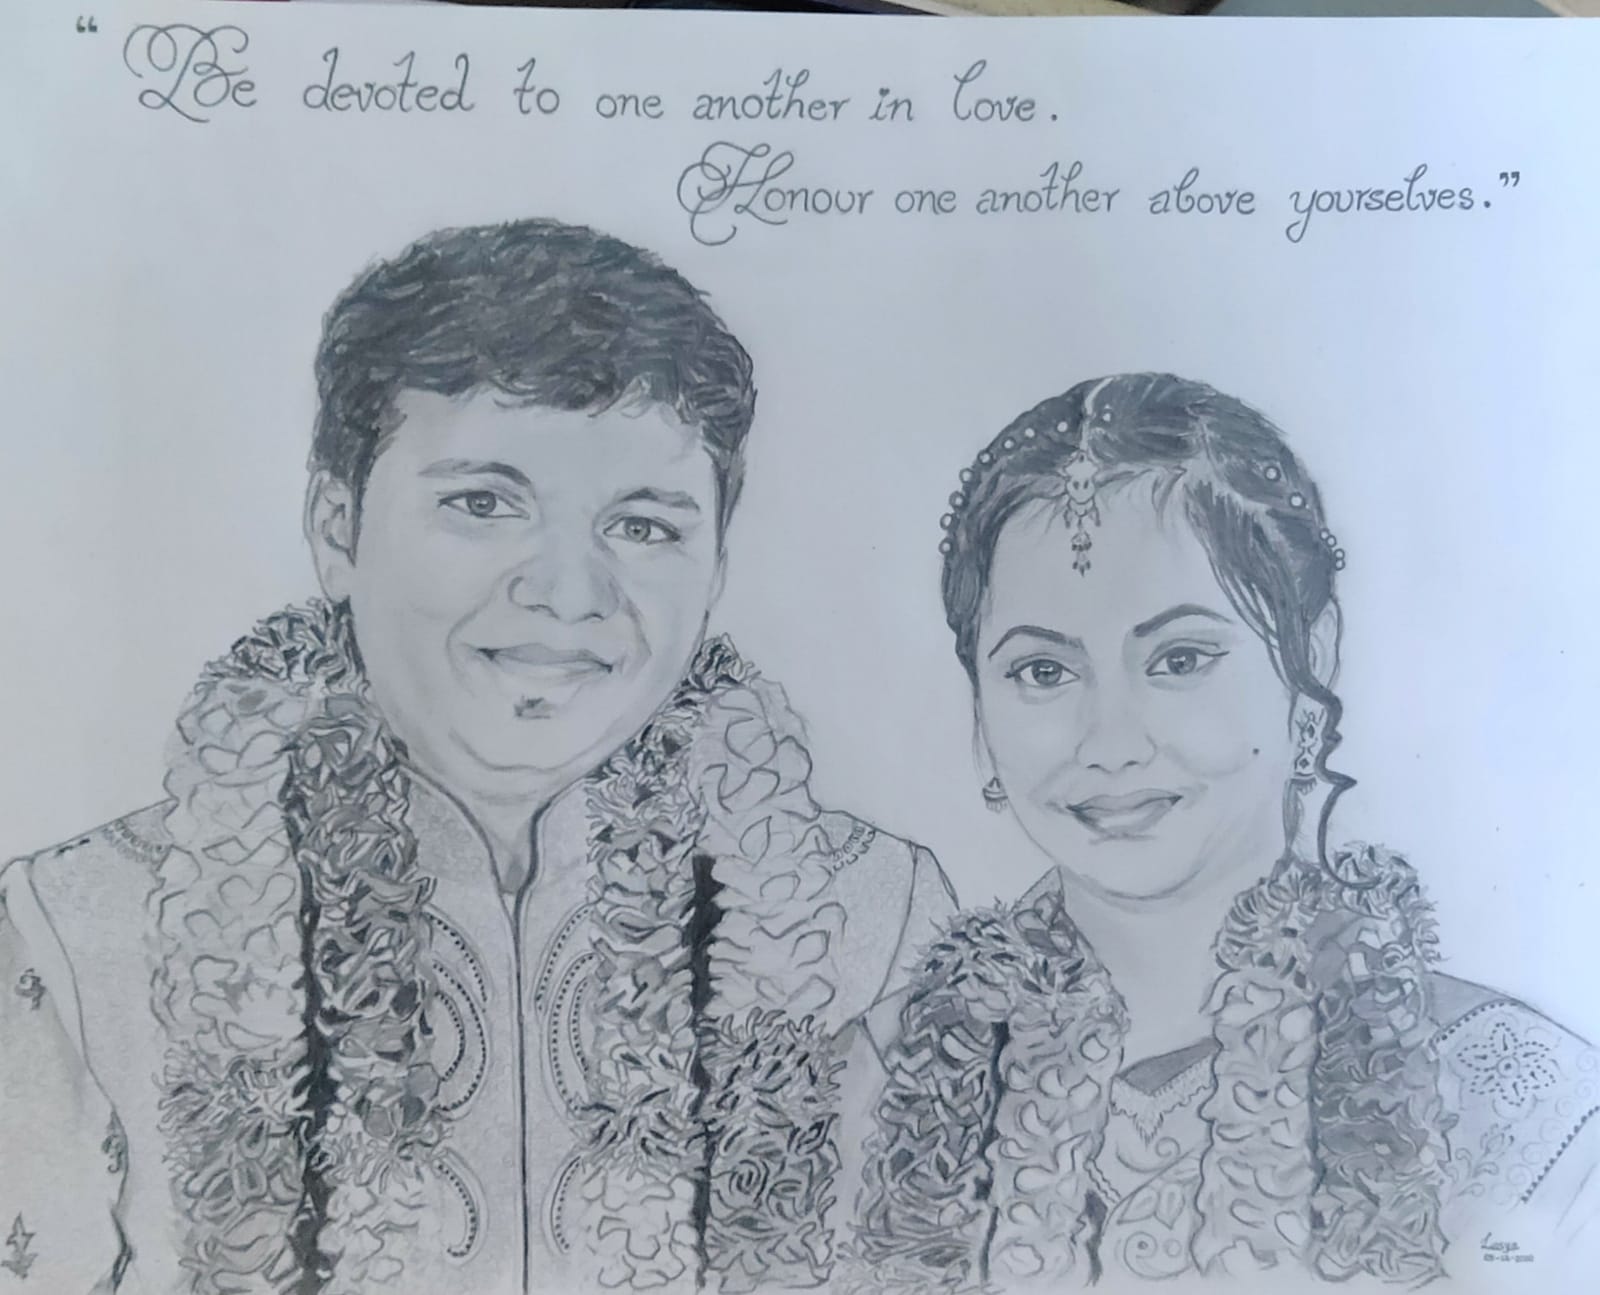 “ Be devoted to one another in love.
Honour one another above yourselves.”
Lasya